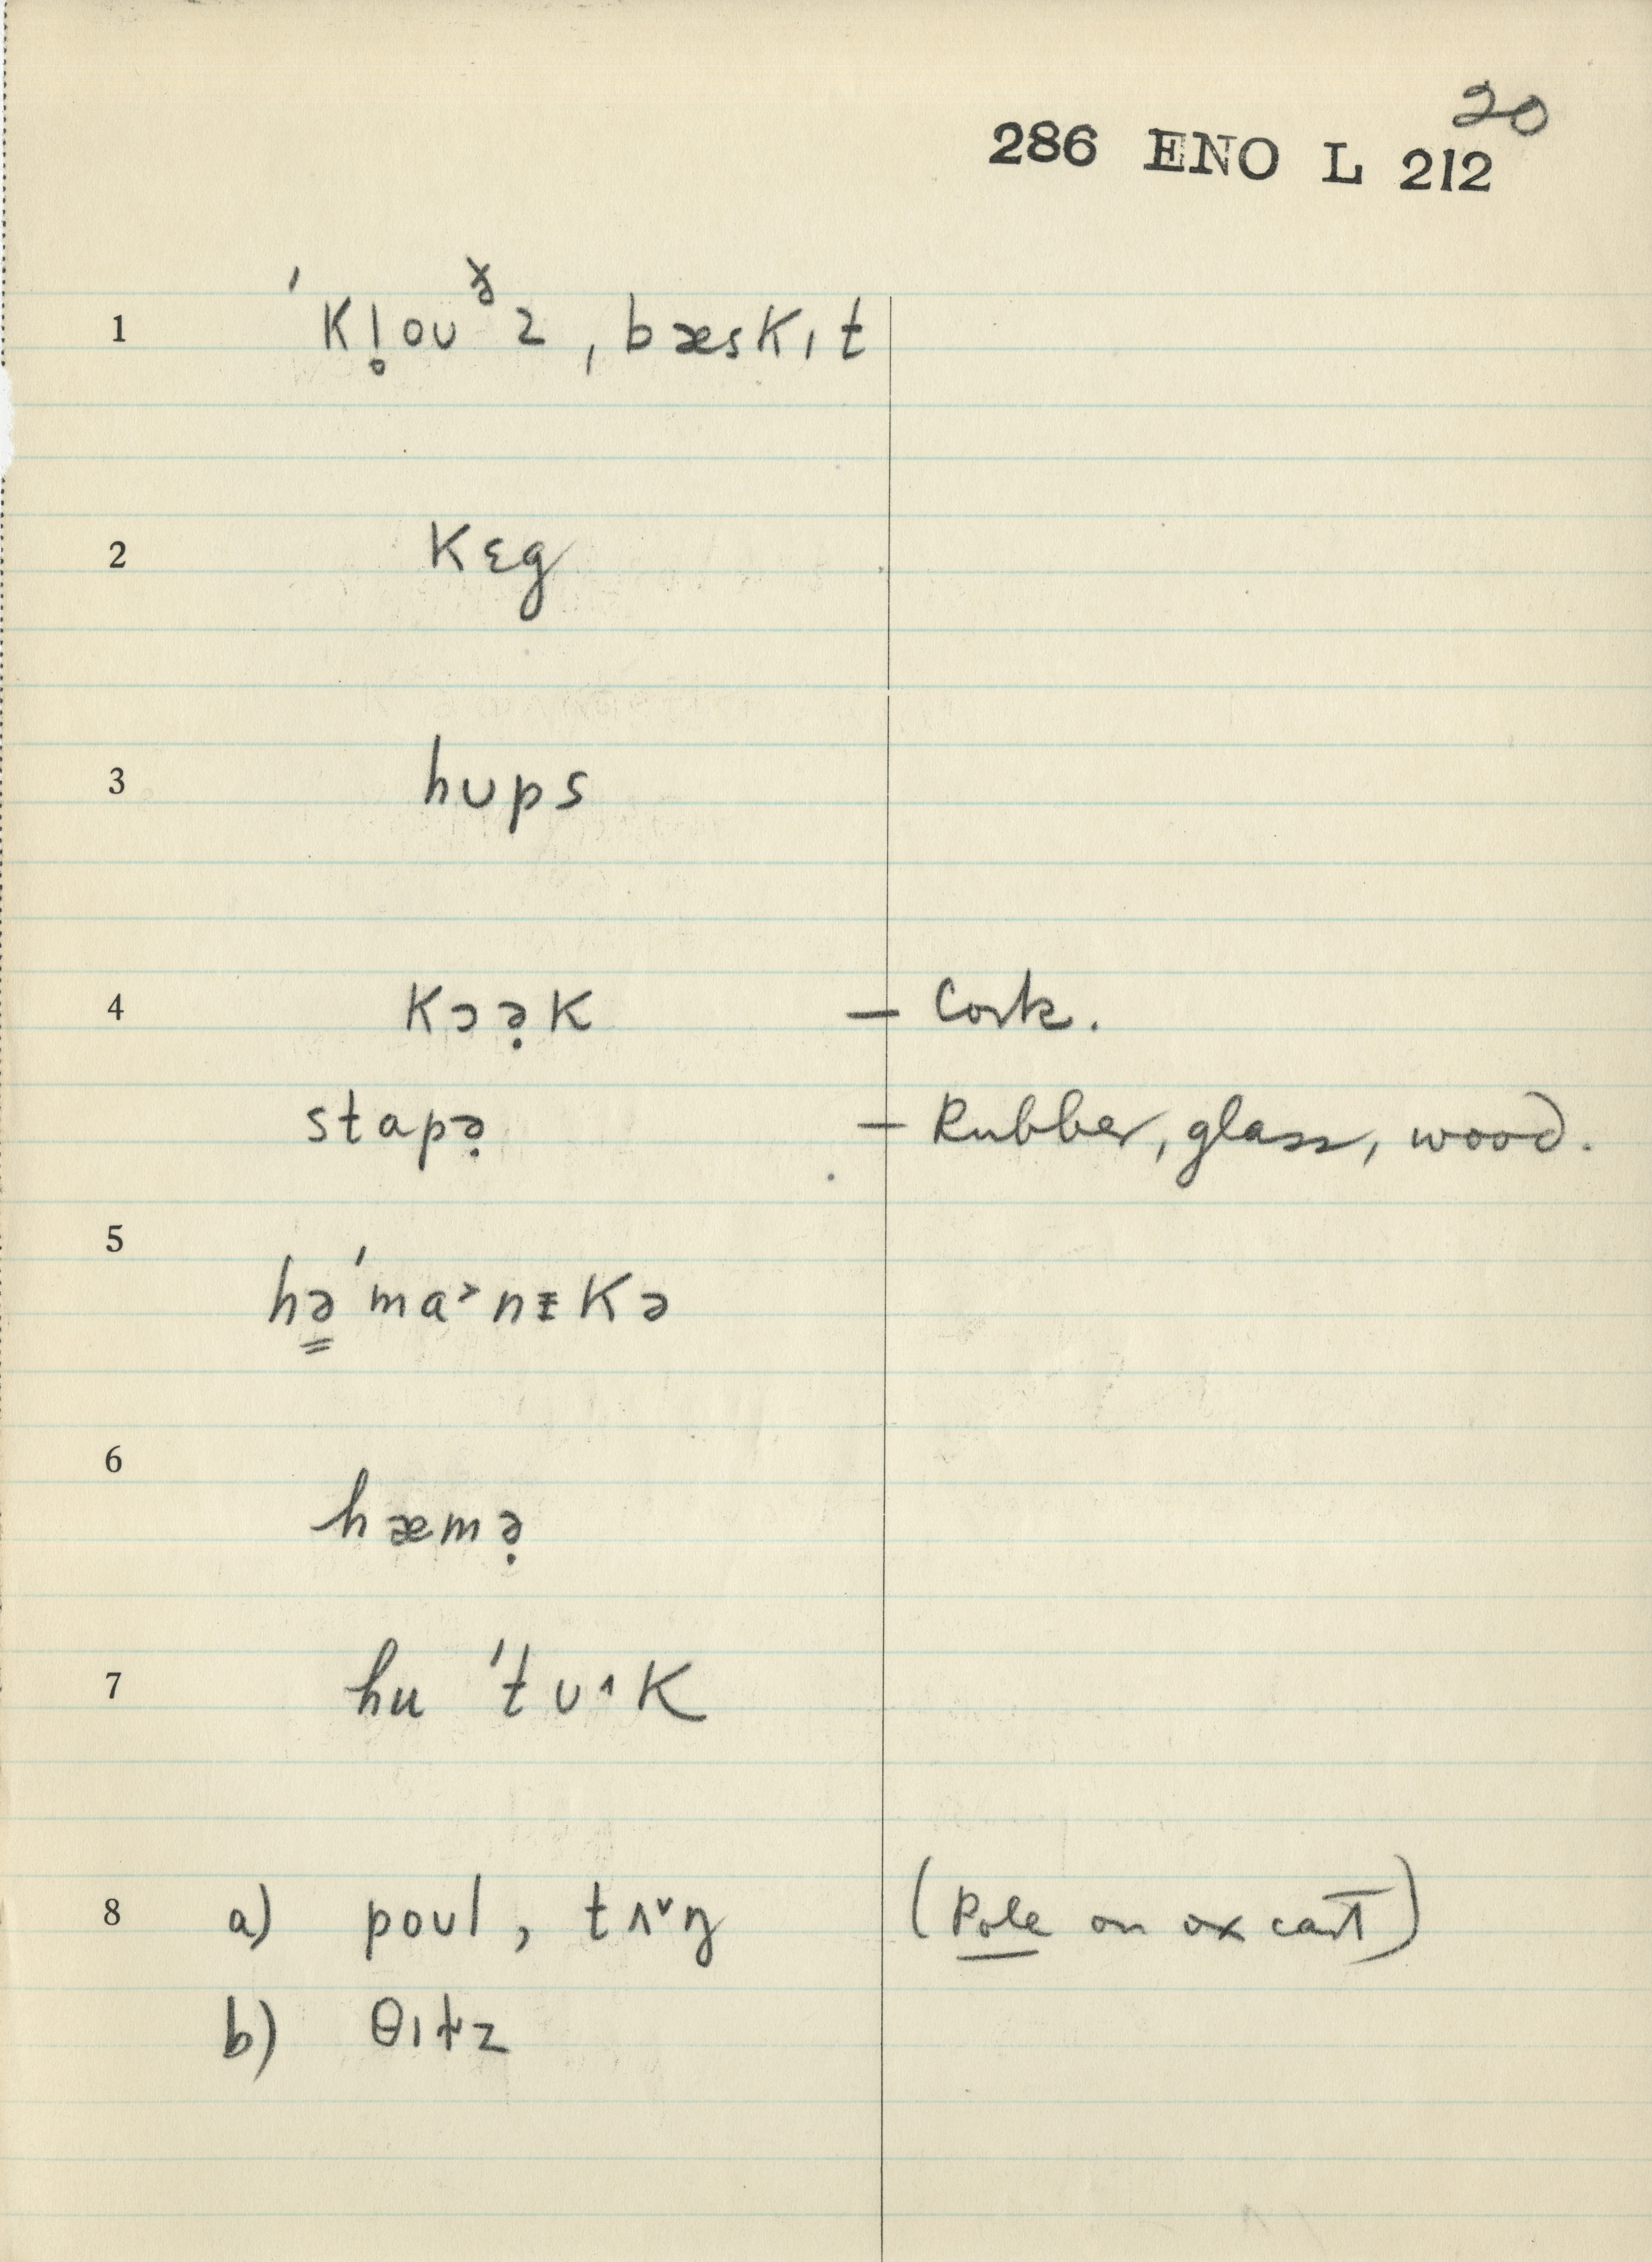 20
286 ENO L 212
1 ˈKl̥ouᵟz, bæsKɪt
2 Kɛg
3 hups
4 Kɔə̣K – Cork.
stapə̣ – Rubber, glass, wood.
5 hə̳ˈma˃nɪKə
6 hæmə̣
7 hu ˈtʊ˄K
8 a) poul, tʌ˅ŋ (Pole on ox cart)
b) θɪt̬z